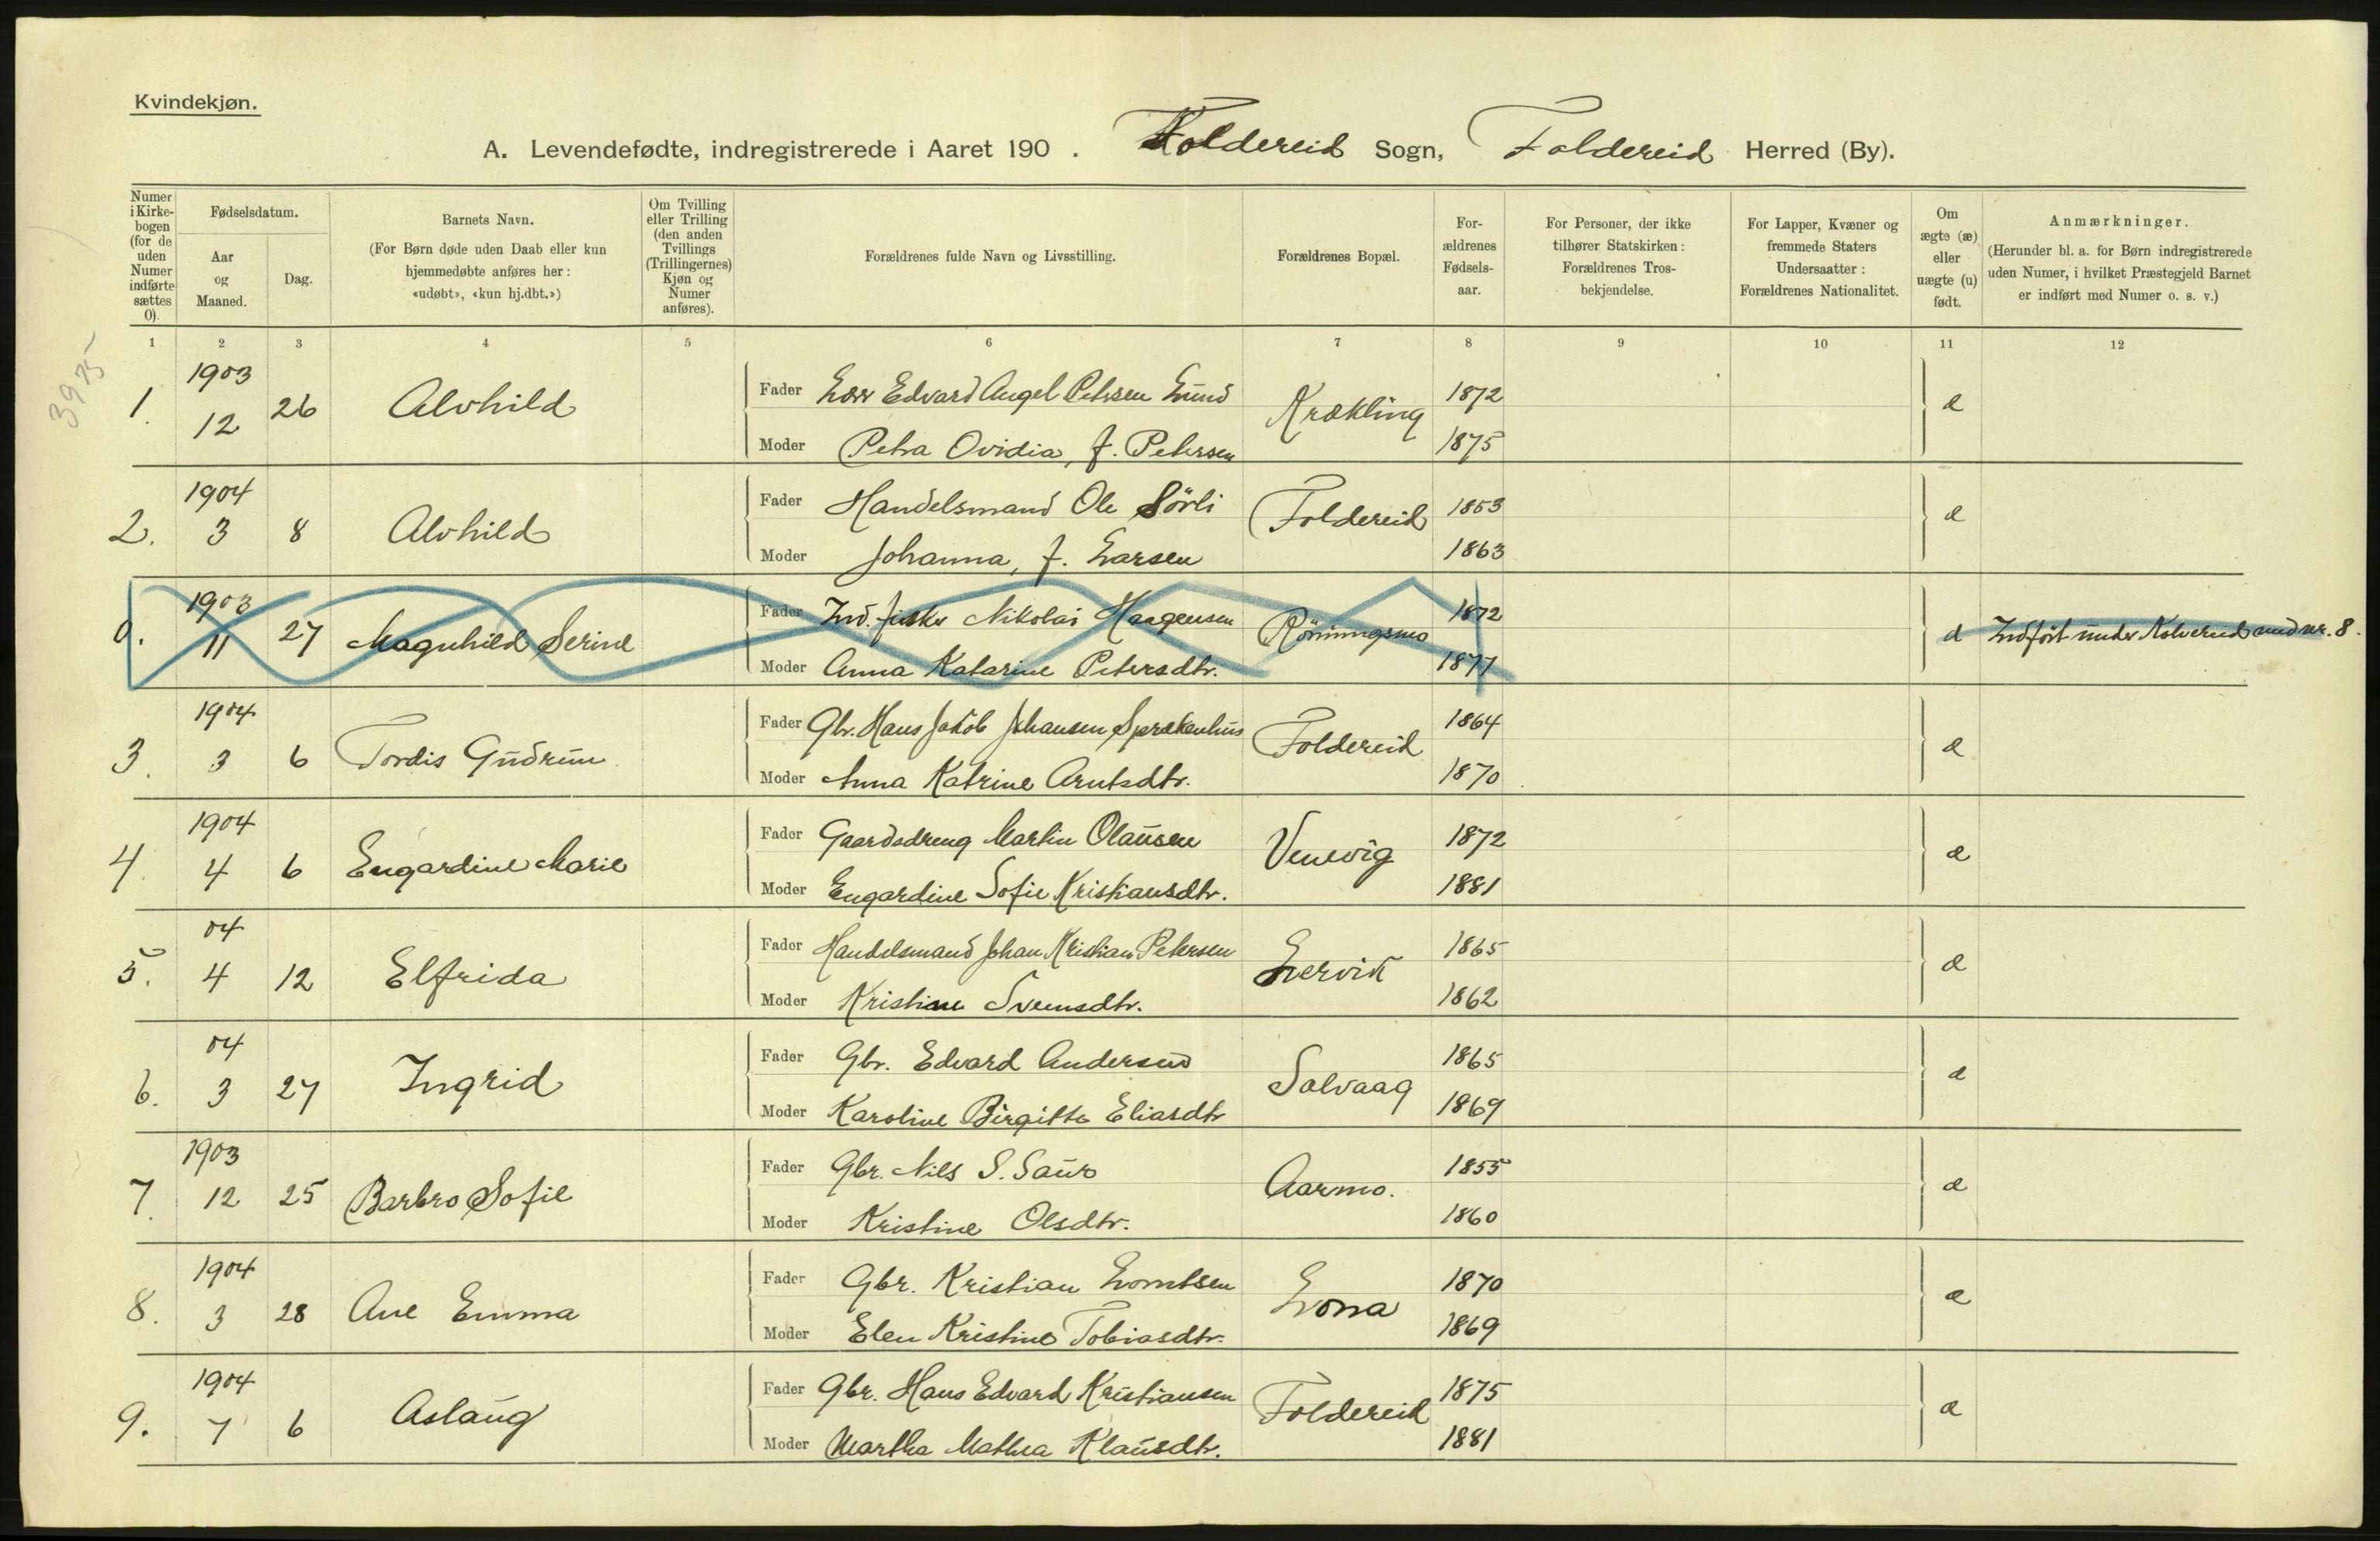 Kvindekjøn.
A. Levendefødte, indregistrerede i Aaret 190 . Foldereid Sogn, Foldereid Herred (By).
Numer i Kirkebogen (for de uden Numer indførte sættes 0).
Fødselsdatum.
Aar og Maaned.
Dag.
Barnets Navn.
(For Børn døde uden Daab eller kun hjemmedøbte anføres her: «udøbt», «kun hj.dbt.»)
Om Tvilling eller Trilling (den anden Tvillings (Trillingernes) Kjøn og Numer anføres).
Forældrenes fulde Navn og Livsstilling.
Forældrenes Bopæl.
Forældrenes Fødselsaar.
For Personer, der ikke tilhører Statskirken: Forældrenes Trosbekjendelse.
For Lapper, Kvæner og fremmede Staters Undersaatter: Forældrenes Nationalitet.
Om ægte (æ) eller uægte (u) født.
Anmærkninger.
(Herunder bl. a. for Børn indregistrerede uden Numer, i hvilket Præstegjeld Barnet er indført med Numer o. s. v.)
1 2 3 4 5 6 7 8 9 10 11 12
3975
1. 1903 12 26 Alvhild
Fader Edvard Angel Petersen Lund Krækling 1872 æ
Moder Petra Ovidia, f. Petersen 1875
2. 1904 3 8 Alvhild
Fader Handelsmand Ole Sörli Foldereid 1853 æ
Moder Johanna, f. Larsen 1863
0. 1903 11 27 Magnhild Serine
Fader Ind. fisker Nikolai Haagensen Rönningsmo 1872 æ Indfört under Kolvereid med nr. 8.
Moder Anna Katarine Petersdtr. 1877
3. 1904 3 6 Tordis Gudrun
Fader Gbr. Hans Jakob Johansen Foldereid 1864 æ
Moder Anna Katrine Arntsdtr. 1870
4. 1904 4 6 Engardine Marie
Fader Gaardsdreng Martin Olausen Venevig 1872 æ
Moder Engardine Sofie Kristiansdtr. 1881
5. 04 4 12 Elfrida
Fader Handelsmand Johan Kristian Petersen Lervik 1865 æ
Moder Kristine Svensdtr. 1862
6. 04 3 27 Ingrid
Fader Gbr. Edvard Andersen Salvaag 1865 æ
Moder Karoline Birgitte Eliasdtr 1869
7. 1903 12 25 Barbro Sofie
Fader Gbr. Nils S. Saur Aarmo. 1855 æ
Moder Kristine Olsdtr. 1860
8. 1904 3 28 Ane Emma
Fader Gbr. Kristian Lorntsen Lona 1870 æ
Moder Elen Kristine Tobiasdtr. 1869
9. 1904 7 6 Aslaug
Fader Gbr. Hans Edvard Kristiansen Foldereid 1875 æ
Moder Martha Mathea Klausdtr. 1881